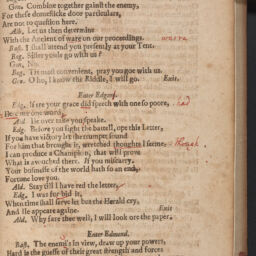 Gon. Combine together gainst the enemy,
For these domesticke doore particulars,
Are not to question here.
Alb. Let us then determine
With the Ancient of warre on our proceedings.
Bast. I shall attend you presently at your Tent.
Reg. Sister youle go with us?
Gon. No.
Reg. Tis most convenient, pray you goe with us.
Gon. O ho, I know the Riddle, I will go. Exit.
Enter Edgar.
Edg. If ere your grace did speech with one so poore, had
Heare me one word.
Alb. Ile over take you, speake.
Edg. Before you fight the battell, ope this Letter,
If you have victory let the trumpet sound
For him that brought it, wretched thoughts I seeme, though
I can produce a Champion, that will prove
What is avouched there. If you miscarry.
Your businesse of the world hath so an end,
Fortune love you.
Alb. Stay till I have red the letter,
Edg. I was for bid it,
When time shall serve let but the Herald cry,
And Ile appeare againe. Exit
Alb. Why fare thee well, I will look ore the paper.
Enter Edmund.
Bast. The enemy's in view, draw up your powers,
Hard is the guesse of their great strength and forces